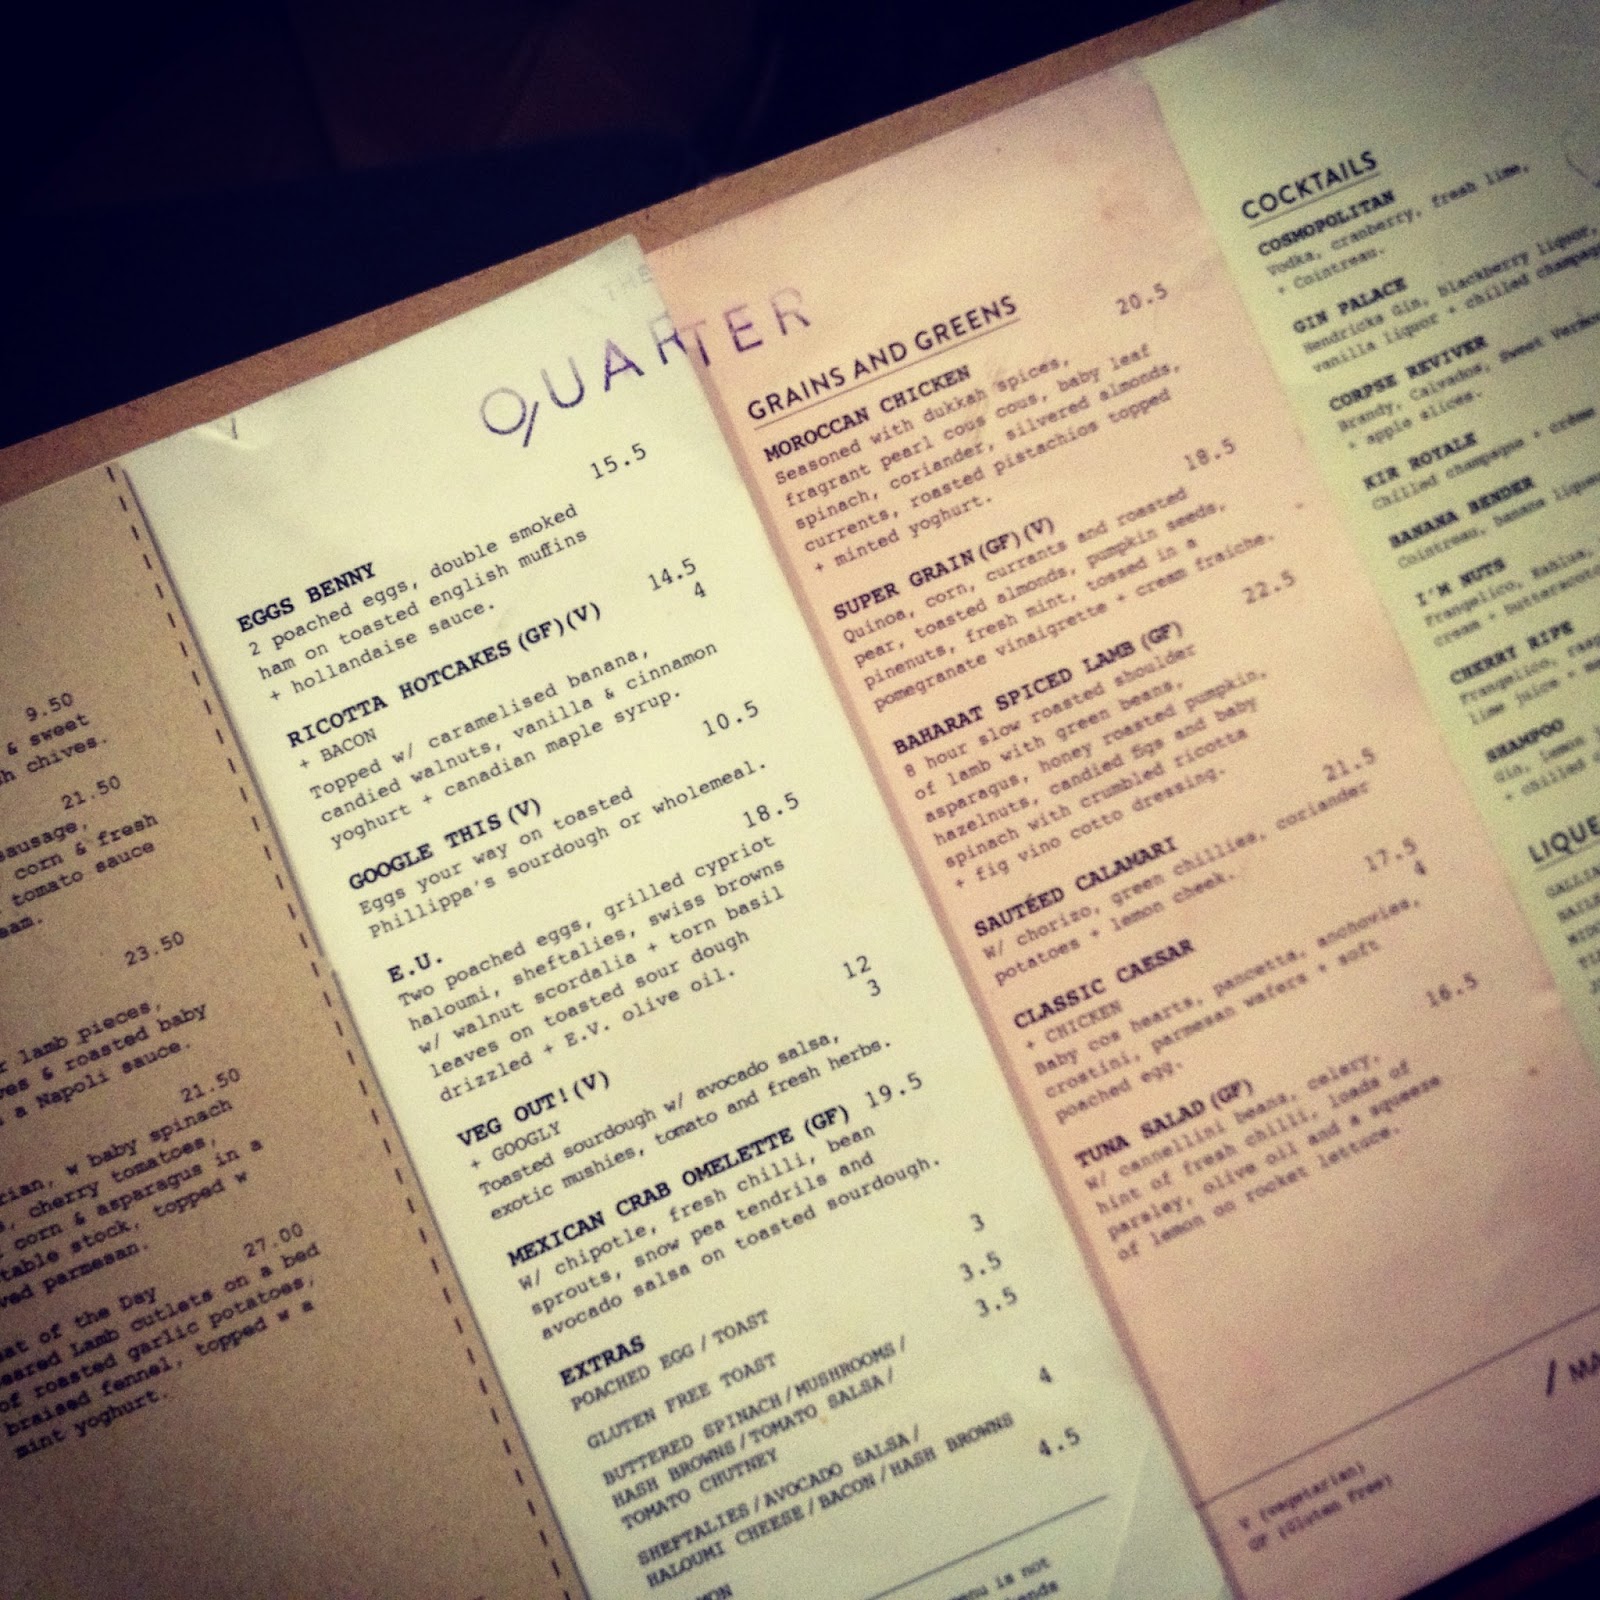 9.50
& sweet
chives.
21.50
sausage,
corn & fresh
tomato sauce
23.50
lamb pieces,
& roasted baby
a Napoli sauce.
21.50
w baby spinach
cherry tomatoes,
corn & asparagus in a
stock, topped w
parmesan.
27.00
of the Day
Lamb cutlets on a bed
of roasted garlic potatoes,
braised fennel, topped w a
mint yoghurt.
THE
QUARTER
EGGS BENNY 15.5
2 poached eggs, double smoked
ham on toasted english muffins
+ hollandaise sauce.
RICOTTA HOTCAKES (GF)(V) 14.5
+ BACON 4
Topped w/ caramelised banana,
candied walnuts, vanilla & cinnamon
yoghurt + canadian maple syrup.
GOOGLE THIS (V) 10.5
Eggs your way on toasted
Phillippa's sourdough or wholemeal.
E.U. 18.5
Two poached eggs, grilled cypriot
haloumi, sheftalies, swiss browns
w/ walnut scordalia + torn basil
leaves on toasted sour dough
drizzled + E.V. olive oil.
VEG OUT! (V) 12
+ GOOGLY 3
Toasted sourdough w/ avocado salsa,
exotic mushies, tomato and fresh herbs.
MEXICAN CRAB OMELETTE (GF) 19.5
W/ chipotle, fresh chilli, bean
sprouts, snow pea tendrils and
avocado salsa on toasted sourdough.
EXTRAS
POACHED EGG / TOAST 3
GLUTEN FREE TOAST 3.5
BUTTERED SPINACH / MUSHROOMS / 3.5
HASH BROWNS / TOMATO SALSA /
TOMATO CHUTNEY
SHEFTALIES / AVOCADO SALSA / 4
HALOUMI CHEESE / BACON / HASH BROWNS
4.5
menu is not
GRAINS AND GREENS
MOROCCAN CHICKEN 20.5
Seasoned with dukkah spices,
fragrant pearl cous cous, baby leaf
spinach, coriander, silvered almonds,
currents, roasted pistachios topped
+ minted yoghurt.
SUPER GRAIN (GF)(V) 18.5
Quinoa, corn, currants and roasted
pear, toasted almonds, pumpkin seeds,
pinenuts, fresh mint, tossed in a
pomegranate vinaigrette + cream fraiche.
BAHARAT SPICED LAMB (GF) 22.5
8 hour slow roasted shoulder
of lamb with green beans,
asparagus, honey roasted pumpkin,
hazelnuts, candied figs and baby
spinach with crumbled ricotta
+ fig vino cotto dressing.
SAUTÉED CALAMARI 21.5
W/ chorizo, green chillies, coriander
potatoes + lemon cheek.
CLASSIC CAESAR 17.5
+ CHICKEN 4
Baby cos hearts, pancetta, anchovies,
crostini, parmesan wafers + soft
poached egg.
TUNA SALAD (GF) 16.5
W/ cannellini beans, celery,
hint of fresh chilli, loads of
parsley, olive oil and a squeeze
of lemon on rocket lettuce.
V (vegetarian)
GF (Gluten Free)
COCKTAILS
COSMOPOLITAN
Vodka, cranberry, fresh lime,
+ Cointreau.
GIN PALACE
Hendricks Gin, blackberry liquor,
vanilla liquor + chilled champagne
CORPSE REVIVER
Brandy, Calvados, Sweet
+ apple slices.
KIR ROYALE
Chilled champagne + crème
BANANA BENDER
Cointreau, banana
I'M NUTS
Frangelico, Kahlua,
cream + butterscotch
CHERRY RIPE
Frangelico,
lime juice +
SHAMPOO
Gin, lemon
+ chilled